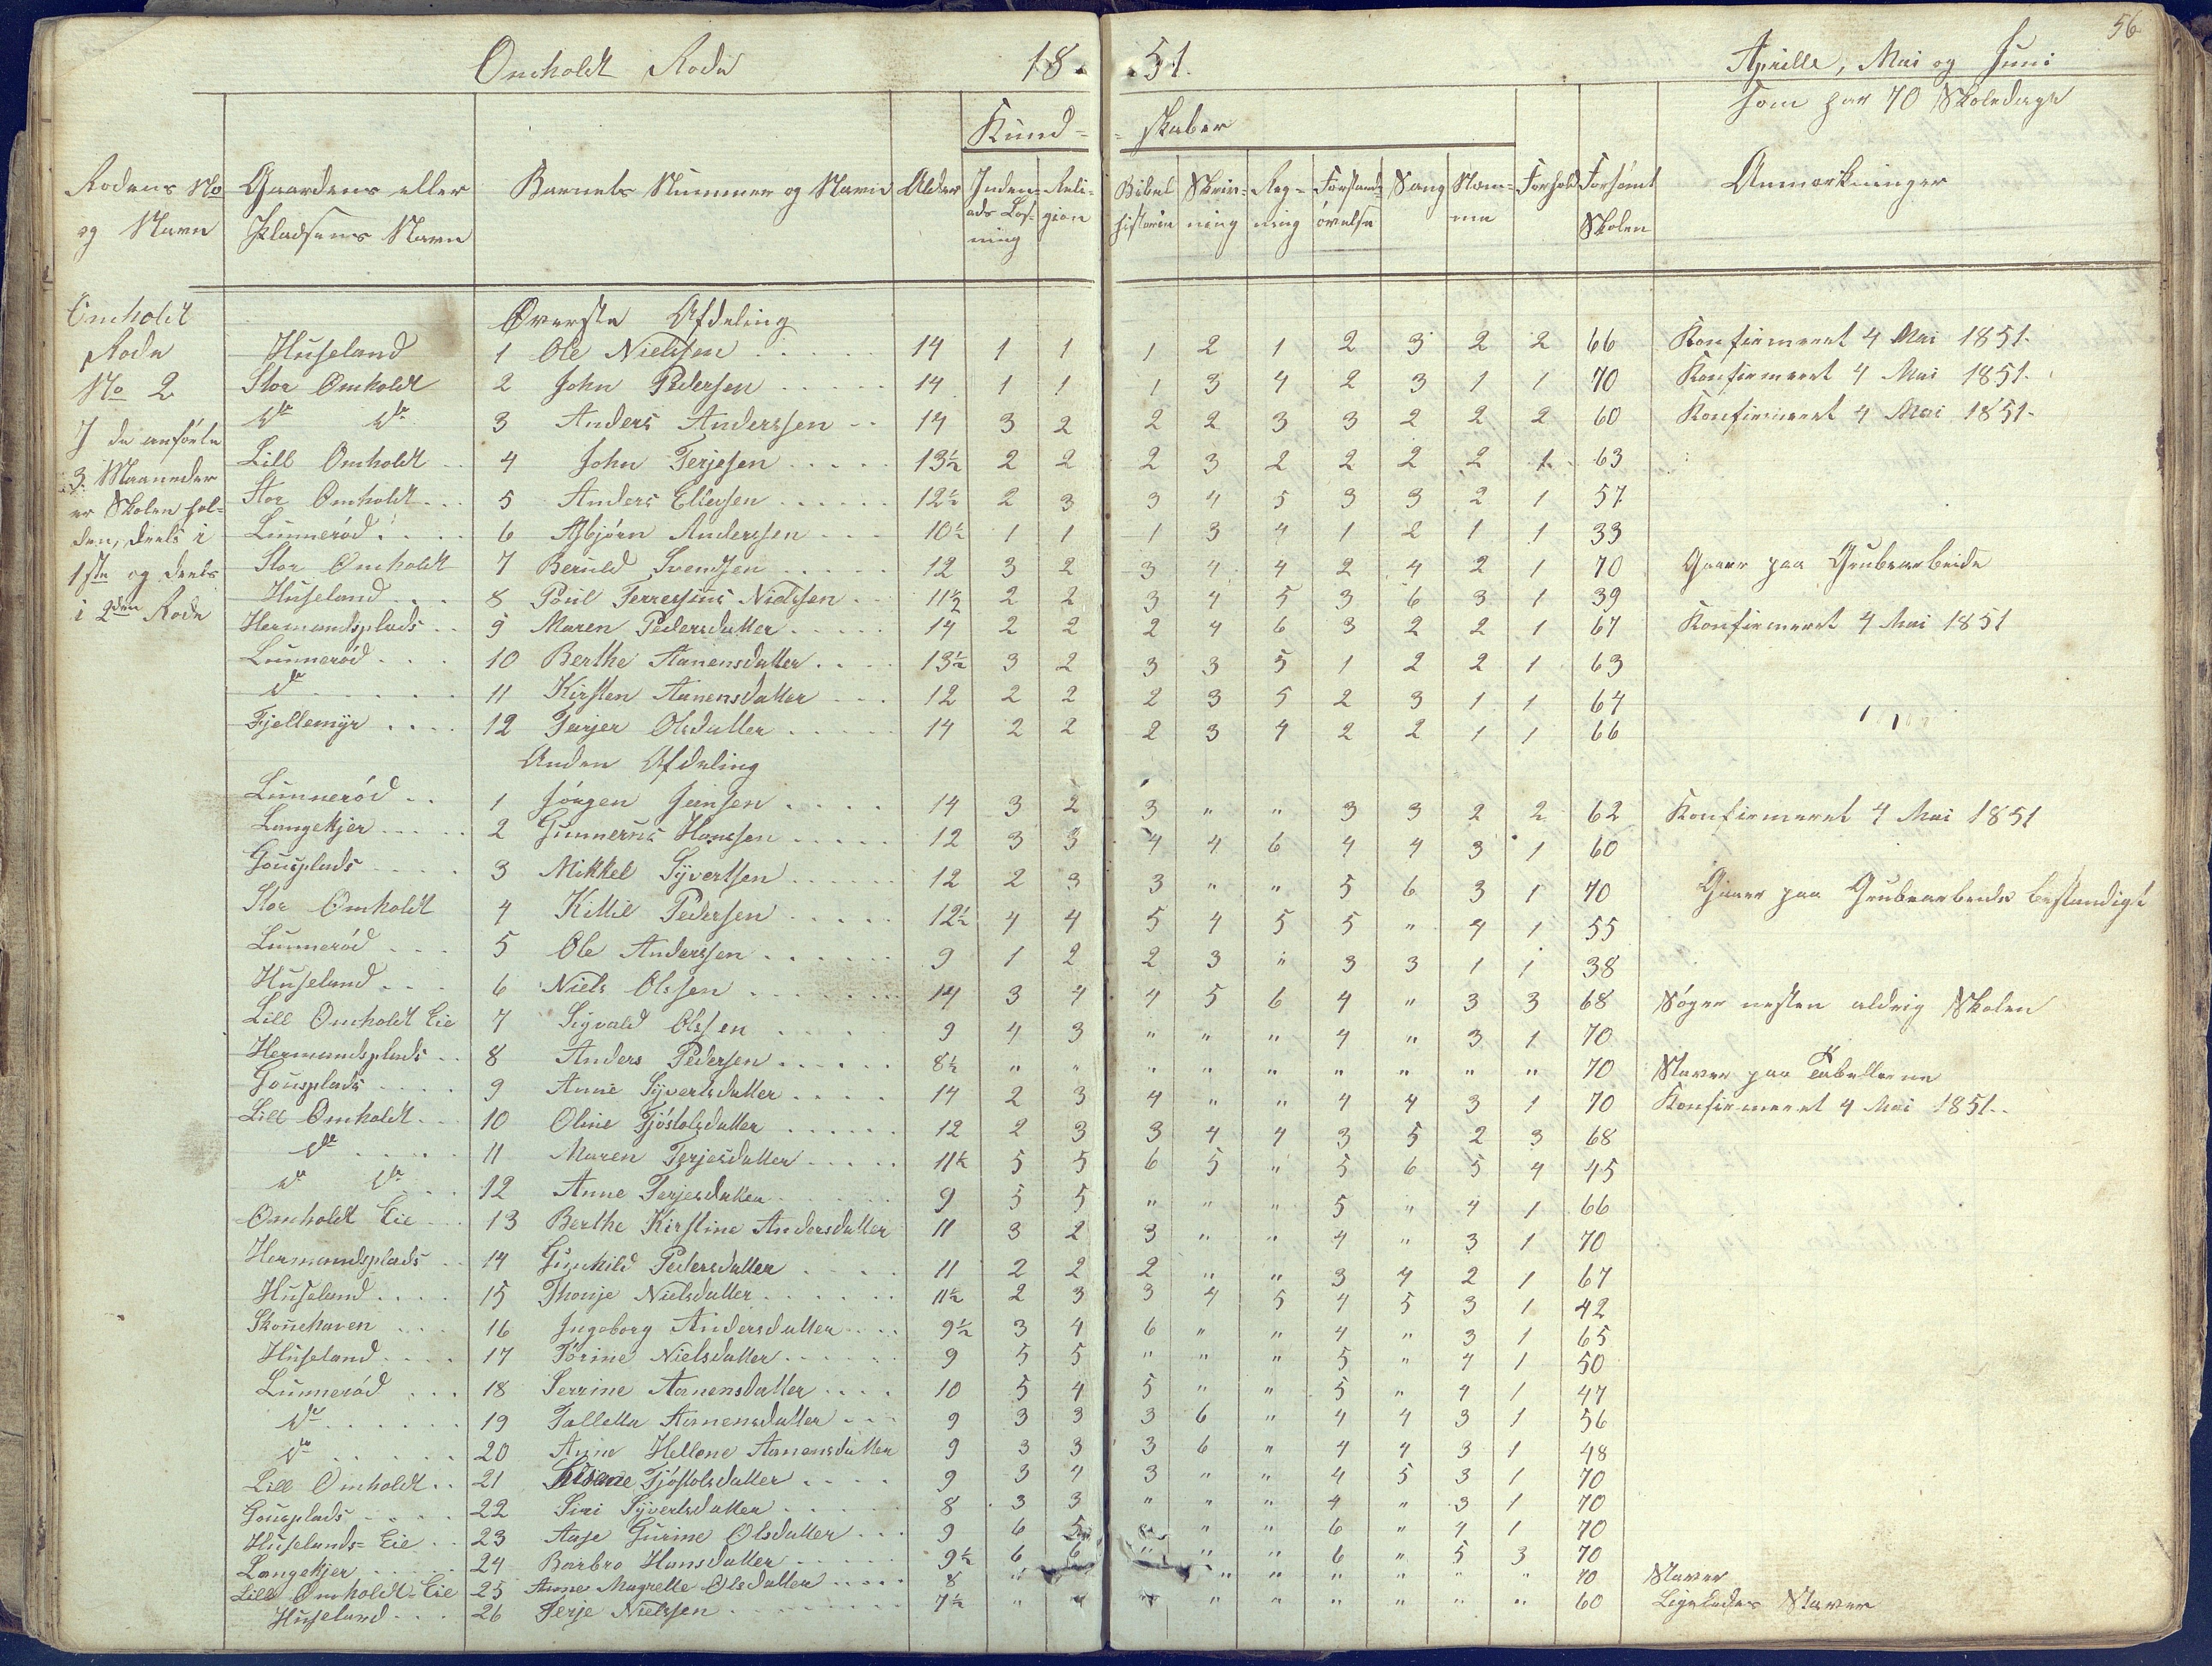 56
Omholdt Rode 1851. Aprille, Mai og Juni
som har 70 Skoledage
Kund- -skaber
Rodens No og Navn | Gaardens eller Pladsens Navn | Barnets Nummer og Navn | Alder | Inden- ads Læs- ning | Reli- gion | Bibel historie | Skriv- ning | Reg- ning | Forstands øvelse | Sang | Nem- me | Forhold | Forsømt Skolen | Anmærkninger
Omholdt
Rode
No 2
I de anførte
3 Maaneder
er Skolen hol-
den, deels i
1ste og deels
i 2den Rode
Øverste Afdeling
Huseland 1 Ole Nielssen 14 1 1 1 2 1 2 3 2 2 66 Konfirmeret 4 Mai 1851.
Stor Omholdt 2 John Pedersen 14 1 1 1 3 4 2 3 1 1 70 Konfirmeret 4 Mai 1851.
do do 3 Anders Anderssen 14 3 2 2 2 3 3 2 2 2 60 Konfirmeret 4 Mai 1851.
Lill Omholdt 4 John Terjesen 13½ 2 2 2 3 2 2 2 2 1 63
Stor Omholdt 5 Anders Ellefsen 12½ 2 3 3 4 5 3 3 2 1 57
Lunnerød 6 Asbjørn Anderssen 10½ 1 1 1 3 4 1 2 1 1 33
Stor Omholdt 7 Beruld Svendsen 12 3 2 3 4 4 2 4 2 1 70 Gaaer paa Grubearbeide
Huseland 8 Poul Terresius Nielssen 11½ 2 2 3 4 5 3 6 3 1 39
Hermandsplads 9 Maren Pedersdatter 14 2 2 2 4 6 3 2 2 1 67 Konfirmeret 4 Mai 1851
Lunnerød 10 Berthe Aanensdatter 13½ 3 2 3 3 5 1 2 2 1 63
do 11 Kirsten Aanensdatter 12 2 2 2 3 5 2 3 1 1 64
Fjellemyr 12 Terjer Olsdatter 14 2 2 2 3 4 2 2 1 1 66
Anden Afdeling
Lunnerød 1 Jørgen Jensen 14 3 2 3 " " 3 3 2 2 62 Konfirmeret 4 Mai 1851
Langekjer 2 Gunnerus Hanssen 12 3 3 4 4 6 4 4 3 1 60
Gousplads 3 Mikkel Syvertsen 12 2 3 3 " " 5 6 3 1 70 Gaaer paa Grubearbeide bestandigt
Stor Omholdt 4 Kittil Pedersen 12½ 4 4 5 4 5 5 " 4 1 55
Lunnerød 5 Ole Anderssen 9 1 2 2 3 " 3 3 1 1 38
Huseland 6 Niels Olssen 14 3 4 4 5 6 4 " 3 3 68 Søger nesten aldrig Skolen
Lill Omholdt Eie 7 Sigvald Olssen 9 4 3 " " " 4 " 3 1 70
Hermandsplads 8 Anders Pedersen 8½ " " " " " " " " " 70 Staver paa Tabellerne
Gousplads 9 Anne Syvertsdatter 14 2 3 4 " " 4 4 3 1 70 Konfirmeret 4 Mai 1851.
Lill Omholdt 10 Oline Tjøstolsdatter 12 2 3 3 4 4 3 5 2 3 68
do 11 Maren Terjesdatter 11½ 5 5 6 5 " 5 6 5 4 45
do do 12 Anne Terjesdatter 9 5 5 " " " 5 " 4 1 66
Omholdt Eie 13 Berthe Kirstine Andersdatter 11 3 2 3 " " 4 " 3 1 70
Hermandsplads 14 Gunhild Pedersdatter 11 2 2 2 " " 3 4 2 1 67
Huseland 15 Thonje Nielsdatter 11½ 2 3 3 4 5 4 5 3 1 42
Skouehaven 16 Ingeborg Andersdatter 9½ 3 4 6 " " 4 " 3 1 65
Huseland 17 Torine Nielsdatter 9 5 5 " " " 5 " 4 1 50
Lunnerød 18 Serrine Aanensdatter 10 5 4 5 " " 5 " 4 1 47
do 19 Tallette Aanensdatter 9 3 3 3 6 " 4 4 3 1 56
do 20 Anne Hellene Aanensdatter 9 3 3 3 6 " 4 4 3 1 48
Lill Omholdt 21 Tjøstolsdatter 9 3 4 3 " " 4 5 3 1 70
Gousplads 22 Siri Syvertsdatter 8 3 3 " " " 4 " 3 1 70
Huselands-Eie 23 Aase Gurine Olsdatter 9 6 5 " " 6 " 4 1 70
Langekjer 24 Barbro Hansdatter 9½ 6 6 " " " 6 " 5 3 70
Lill Omholdt-Eie 25 Anne Magrette Olsdatter 8 " " " " " " " 70 Staver
Huseland 26 Terje Nielssen 7½ " " " " " " " " " 60 Ligeledes Staver